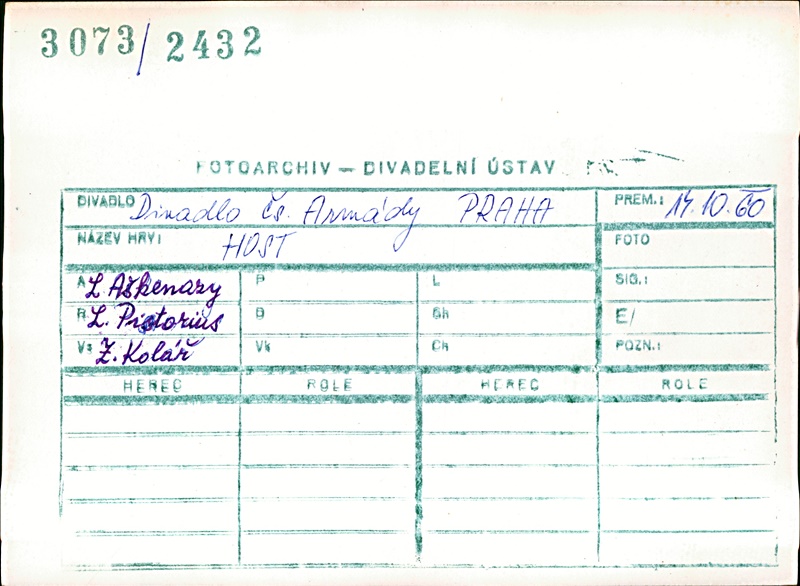 3073/2432
FOTOARCHIV – DIVADELNÍ ÚSTAV
DIVADLO Divadlo čs. Armády PRAHA PREM.: 14.10.60
NÁZEV HRY: HOST FOTO
A L Aškenazy P L SIG.:
R L. Pistorius D Sh E/
Vs Z. Kolář Vk Ch POZN.:
HEREC ROLE HEREC ROLE